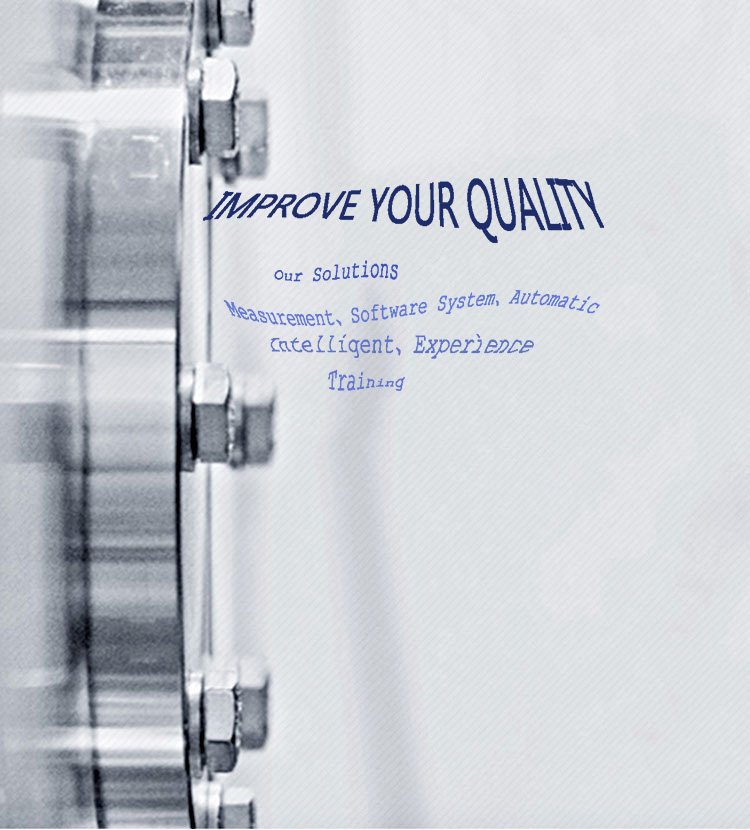 IMPROVE YOUR QUALITY
Our Solutions
Measurement, Software System, Automatic
Intelligent, Experience
Training